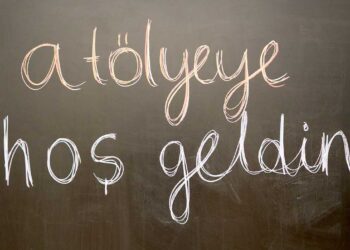 atölyeye
hoş geldin